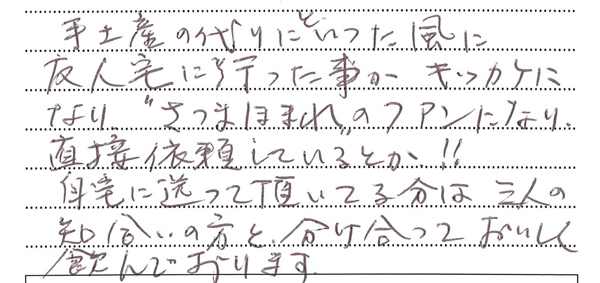 手土産の代りにといった風に
友人宅に行った事が キッカケに
なり"さつまほまれ"のファンになり、
直接依頼しているとか!!
自宅に送って頂いてる分は 三人の
知り合いの方と、分け合って おいしく
飲んでおります